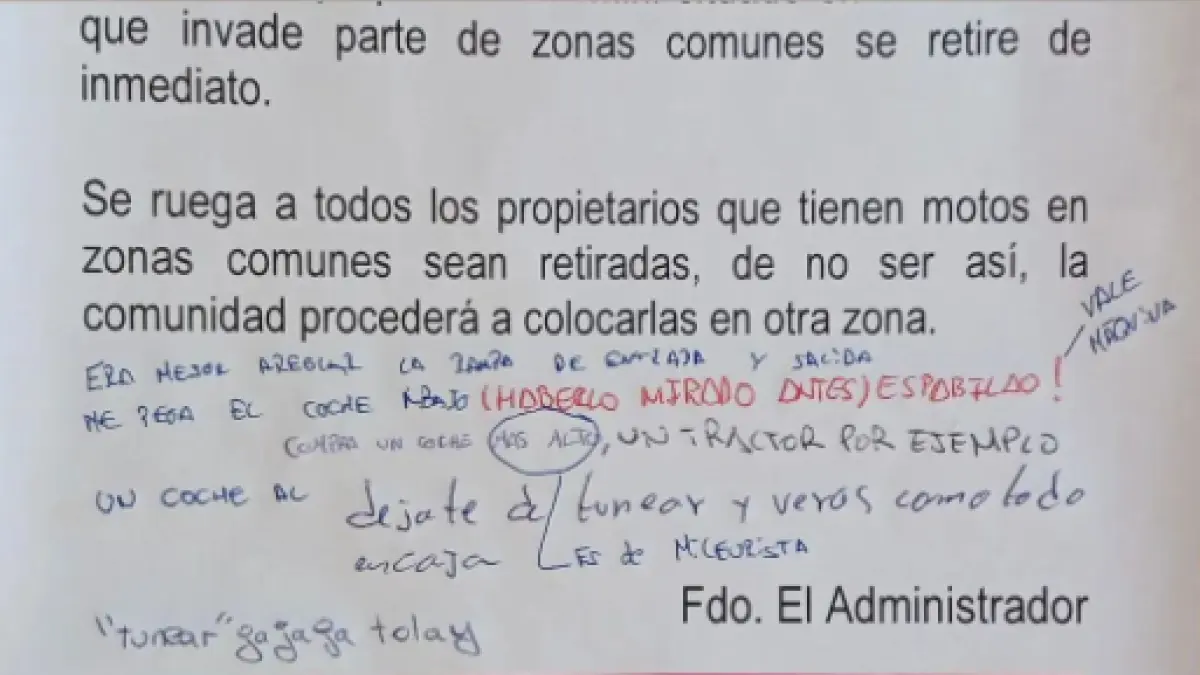 que invade parte de zonas comunes se retire de
inmediato.
Se ruega a todos los propietarios que tienen motos en
zonas comunes sean retiradas, de no ser así, la
comunidad procederá a colocarlas en otra zona.
VALE
MÁQUINA
ERA MEJOR AREGLAR LA RAMPA DE ENTRADA Y SALIDA
ME PEGA EL COCHE ABAJO (HABERLO MIRADO ANTES) ESPABILAO!
COMPRA UN COCHE MAS ALTO, UN TRACTOR POR EJEMPLO
UN COCHE AL
dejate de tunear y veras como todo
encaja
ES de MILEURISTA
Fdo. El Administrador
"tunear" gajaga tolay